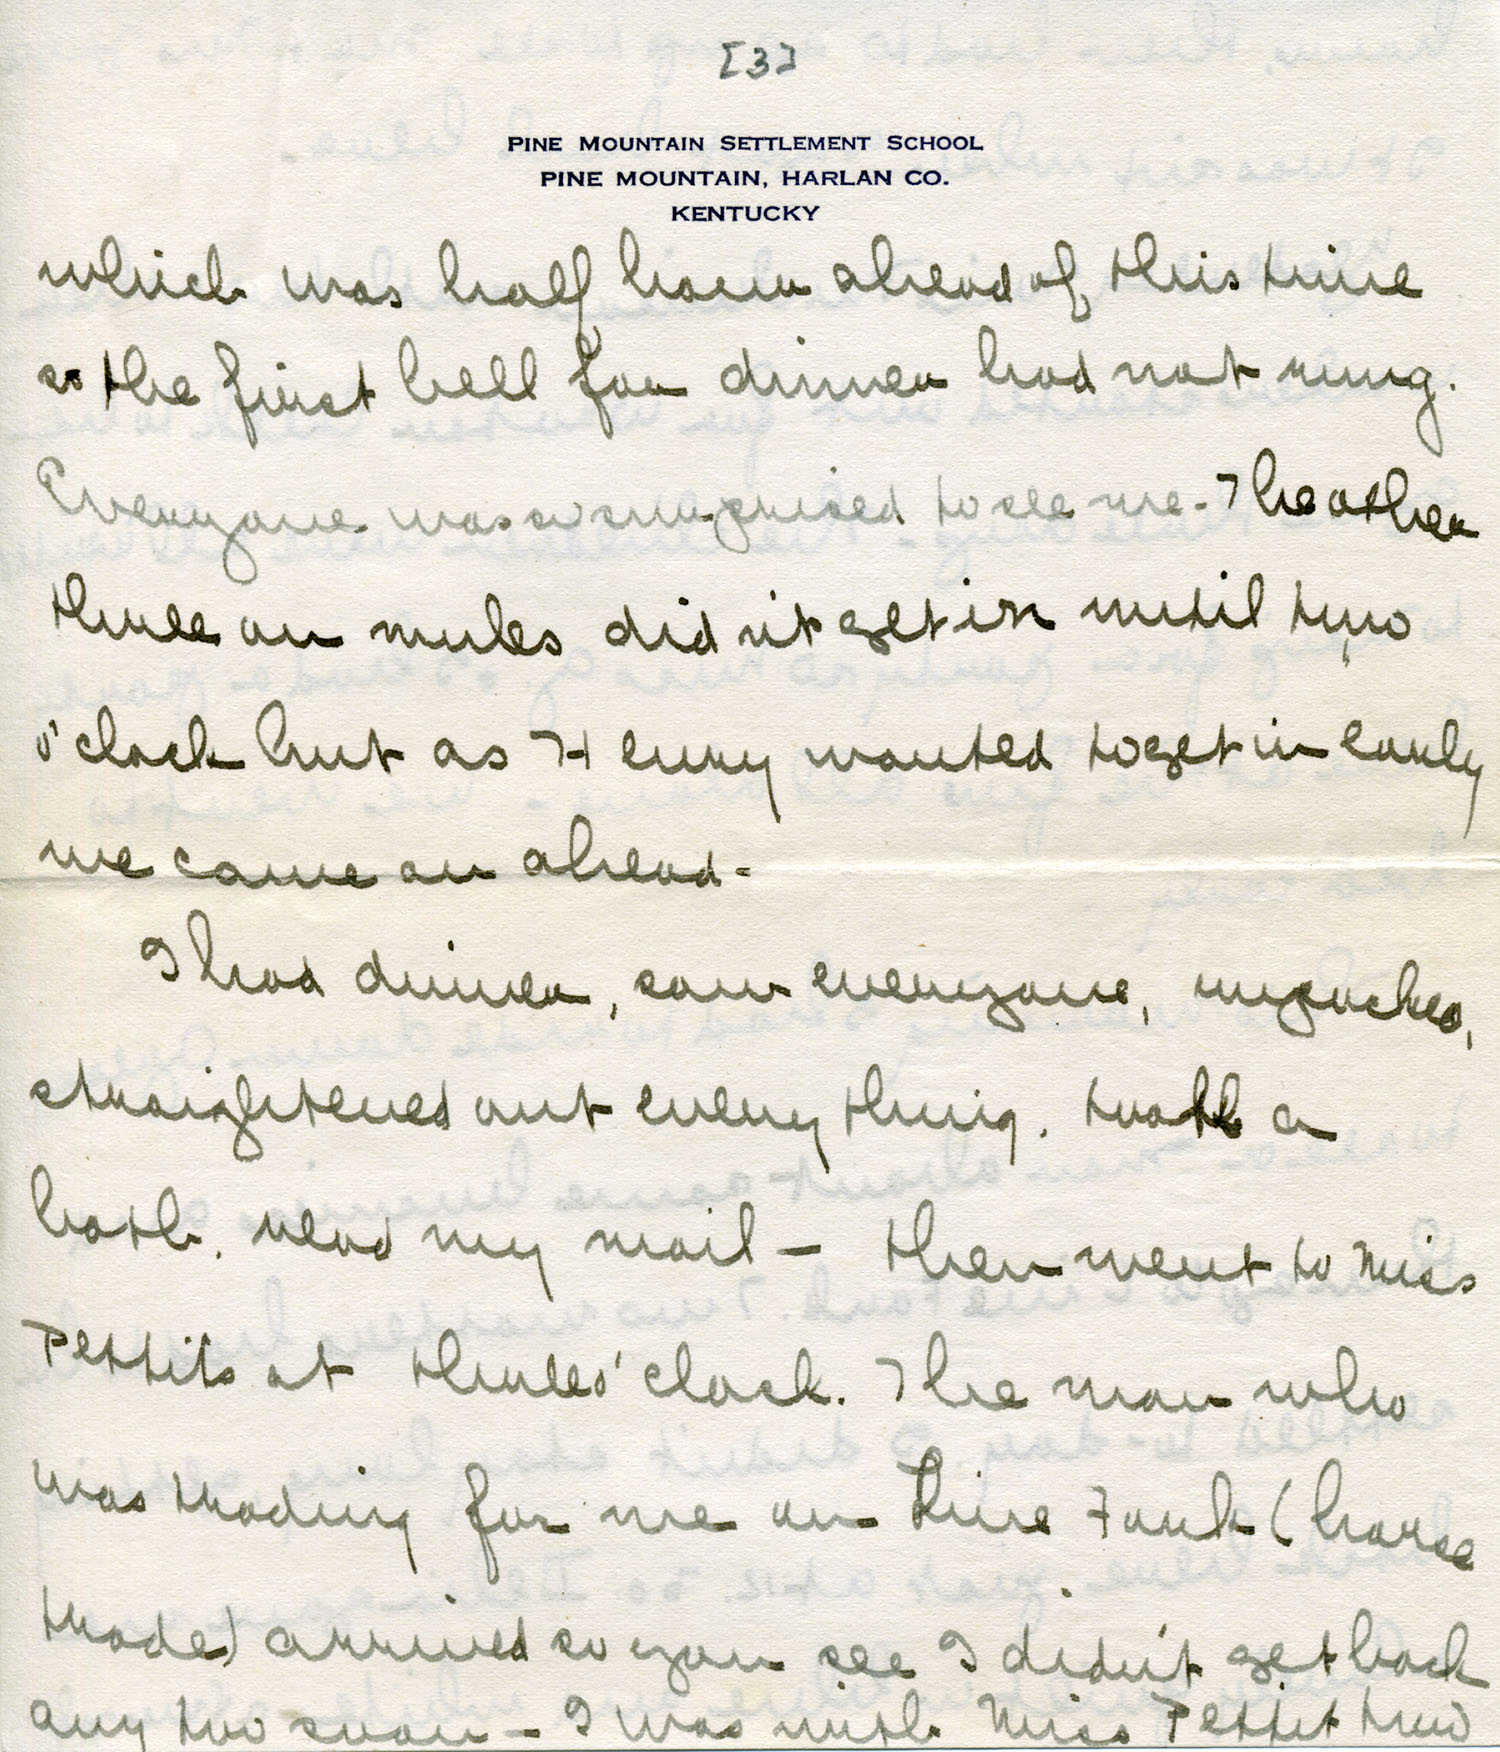 [3]
PINE MOUNTAIN SETTLEMENT SCHOOL
PINE MOUNTAIN, HARLAN CO.
KENTUCKY
which was half hour ahead of this time
so the first bell for dinner had not rung.
Everyone was so surprised to see me. The other
three on mules didn't get in until two
o'clock but as Henry wanted to get in early
we came on ahead-
I had dinner, saw everyone, unpacked,
straightened out everything. took a
bath. read my mail - then went to Miss
Pettits at three o'clock. The man who
was trading for me on Line Fork (horse
trade) arrived so you see I didn't get back
any too soon - I was with Miss Pettit two